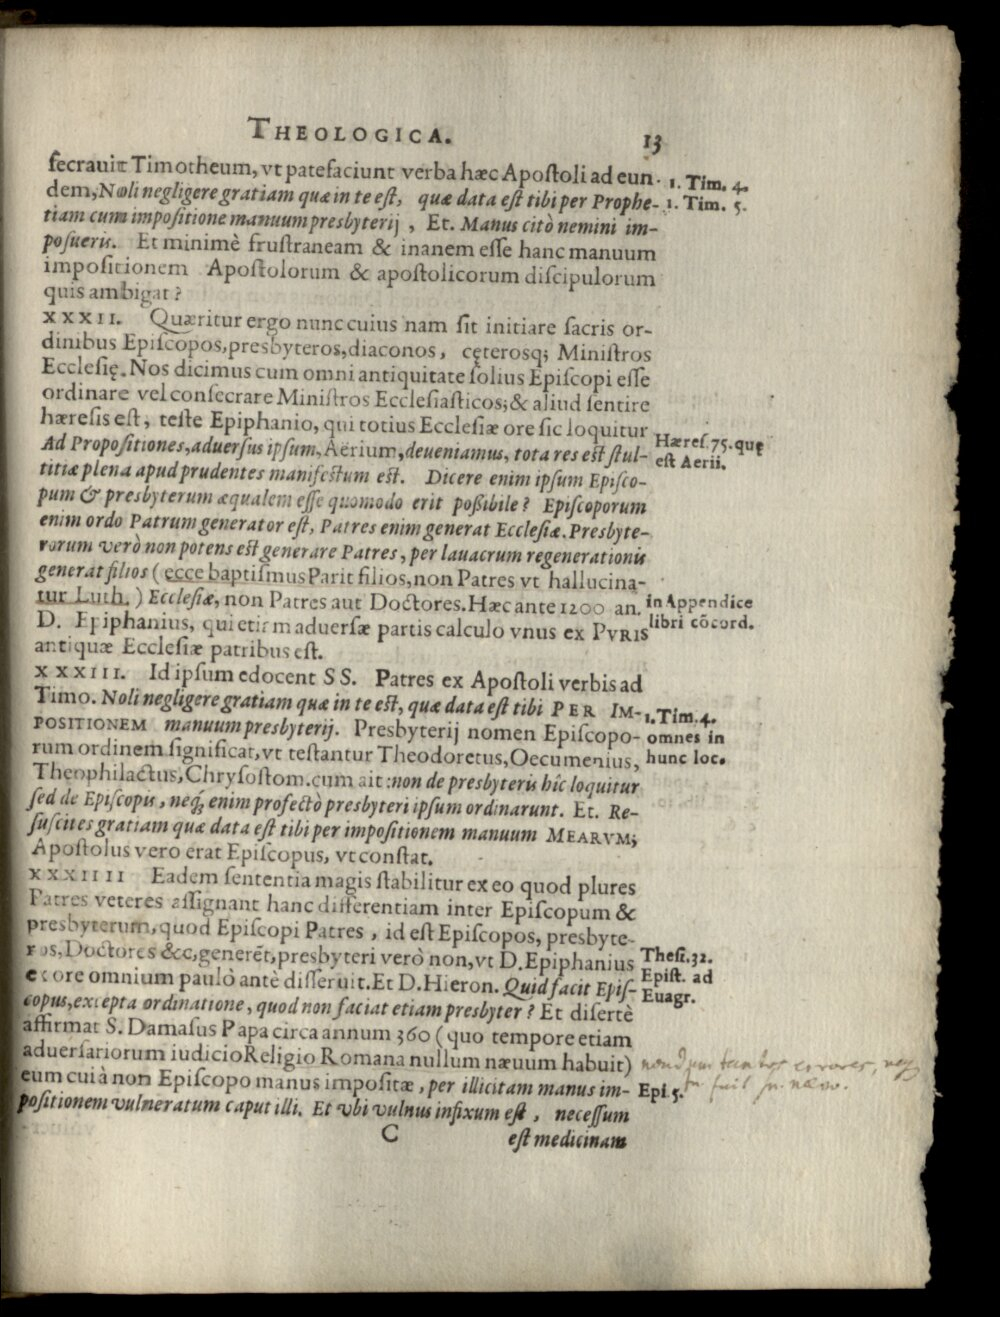 THEOLOGICA. 13
secravit Timotheum, vt patefaciunt verba hæc Apostoli ad eun- 1. Tim. 4.
dem, Noli negligere gratiam quæ in te est, quæ data est tibi per Prophe- 1. Tim. 5.
tiam cum impositione manuum presbyterij, Et. Manus citò nemini im-
posueris. Et minimè frustraneam & inanem esse hanc manuum
impositionem Apostolorum & apostolicorum discipulorum
quis ambigat?
XXXII. Quæritur ergo nunc cuius nam sit initiare sacris or-
dinibus Episcopos, presbyteros, diaconos, cęterosq; Ministros
Ecclesię. Nos dicimus cum omni antiquitate solius Episcopi esse
ordinare vel consecrare Ministros Ecclesiasticos; & aliud sentire
hæresis est, teste Epiphanio, qui totius Ecclesiæ ore sic loquitur Hæres. 75. quę
Ad Propositiones, aduersus ipsum, Aërium, deueniamus, tota res est stul- est Aerii.
titiæ plena apud prudentes manifestum est. Dicere enim ipsum Episco-
pum & presbyterum æqualem esse quomodo erit possibile? Episcoporum
enim ordo Patrum generator est, Patres enim generat Ecclesiæ. Presbyte-
rorum verò non potens est generare Patres, per lauacrum regenerationis
generat filios (ecce baptismus Parit filios, non Patres vt hallucina-
tur Luth.) Ecclesiæ, non Patres aut Doctores. Hæc ante 1200 an. in Appendice
D. Epiphanius, qui etiam aduersæ partis calculo vnus ex PVRIS libri cõcord.
antiquæ Ecclesiæ patribus est.
XXXIII. Id ipsum edocent SS. Patres ex Apostoli verbis ad
Timo. Noli negligere gratiam quæ in te est, quæ data est tibi PER IM- 1. Tim. 4.
POSITIONEM manuum presbyterij. Presbyterij nomen Episcopo- omnes in
rum ordinem significat, vt testantur Theodoretus, Oecumenius, hunc loc.
Theophilactus, Chrysostom. cum ait: non de presbyteris hîc loquitur
sed de Episcopis, neq; enim profectò presbyteri ipsum ordinarunt. Et. Re-
suscites gratiam quæ data est tibi per impositionem manuum MEARVM;
Apostolus vero erat Episcopus, vt constat.
XXXIIII Eadem sententia magis stabilitur ex eo quod plures
Patres veteres assignant hanc differentiam inter Episcopum &
presbyterum, quod Episcopi Patres, id est Episcopos, presbyte-
ros, Doctores &c, generẽt, presbyteri verò non, vt D. Epiphanius Thesi. 32.
ex ore omnium paulò antè disseruit. Et D. Hieron. Quid facit Epis- Epist. ad
copus, excepta ordinatione, quod non faciat etiam presbyter? Et disertè Euagr.
affirmat S. Damasus Papa circa annum 360 (quo tempore etiam
aduersariorum iudicio Religio Romana nullum næuum habuit)
eum cui à non Episcopo manus impositæ, per illicitam manus im- Epi. 5.
positionem vulneratum caput illi. Et vbi vulnus infixum est, necessum
C est medicinam